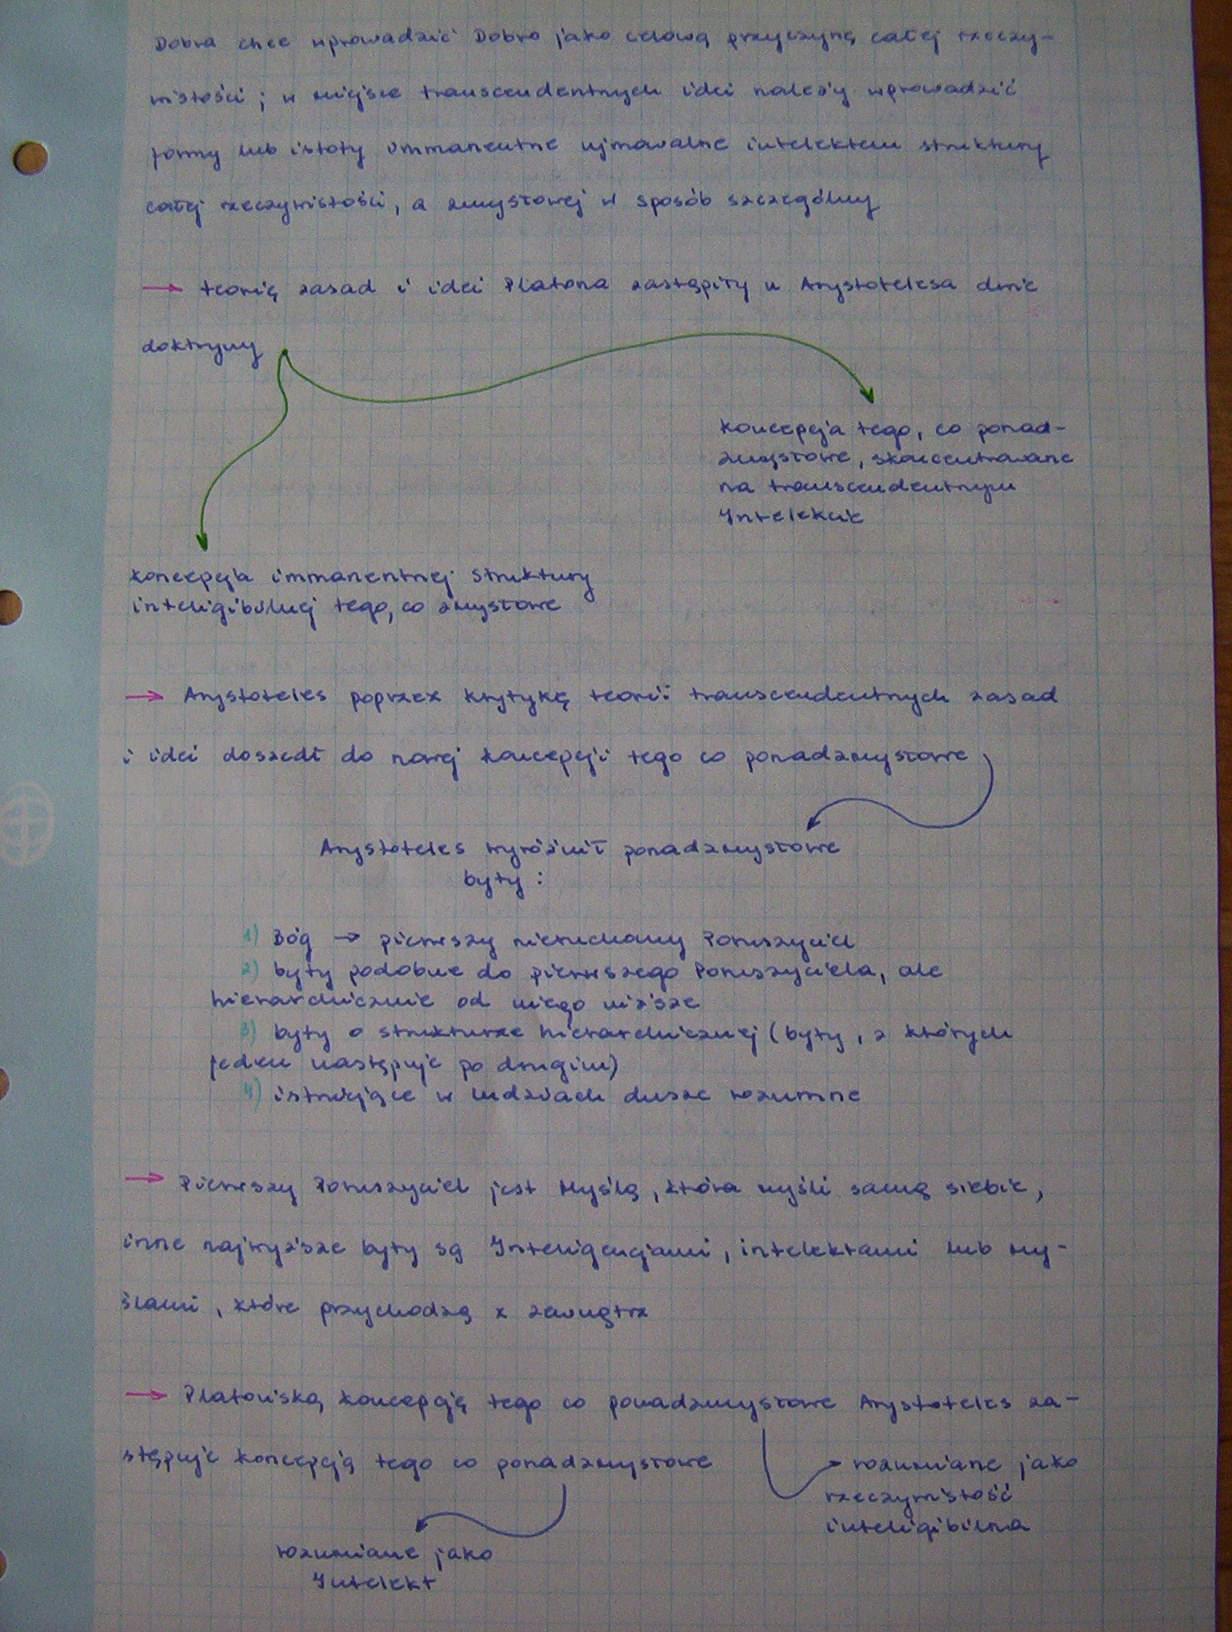 Dobra chce wprowadzić Dobro jako celową przyczynę całej rzeczy-
wistości; w miejsce transcendentnych idei należy wprowadzić
formy lub istoty immanentne ujmowalne intelektem struktury
całej rzeczywistości, a zmysłowej w sposób szczególny
→ teorię zasad i idei Platona zastąpiły u Arystotelesa dwie
doktryny
koncepcja tego, co ponad-
zmysłowe, skoncentrowane
na transcendentnym
Intelekcie
koncepcja immanentnej struktury
inteligibilnej tego, co zmysłowe
→ Arystoteles poprzez krytykę teorii transcendentnych zasad
i idei doszedł do nowej koncepcji tego co ponadzmysłowe
Arystoteles wyróżnił ponadzmysłowe
byty:
1) Bóg → pierwszy nieruchomy Poruszyciel
2) byty podobne do pierwszego Poruszyciela, ale
hierarchicznie od niego niższe
3) byty o strukturze hierarchicznej (byty, z których
jeden następuje po drugim)
4) istniejące w ludziach dusze rozumne
→ Pierwszy Poruszyciel jest Myślą, która myśli samą siebie,
inne najwyższe byty są Inteligencjami, intelektami lub My-
ślami, które przychodzą z zewnątrz
→ Platońską koncepcję tego co ponadzmysłowe Arystoteles za-
stępuje koncepcją tego co ponadzmysłowe
rozumiane jako
rzeczywistość
inteligibilna
rozumiane jako
Intelekt